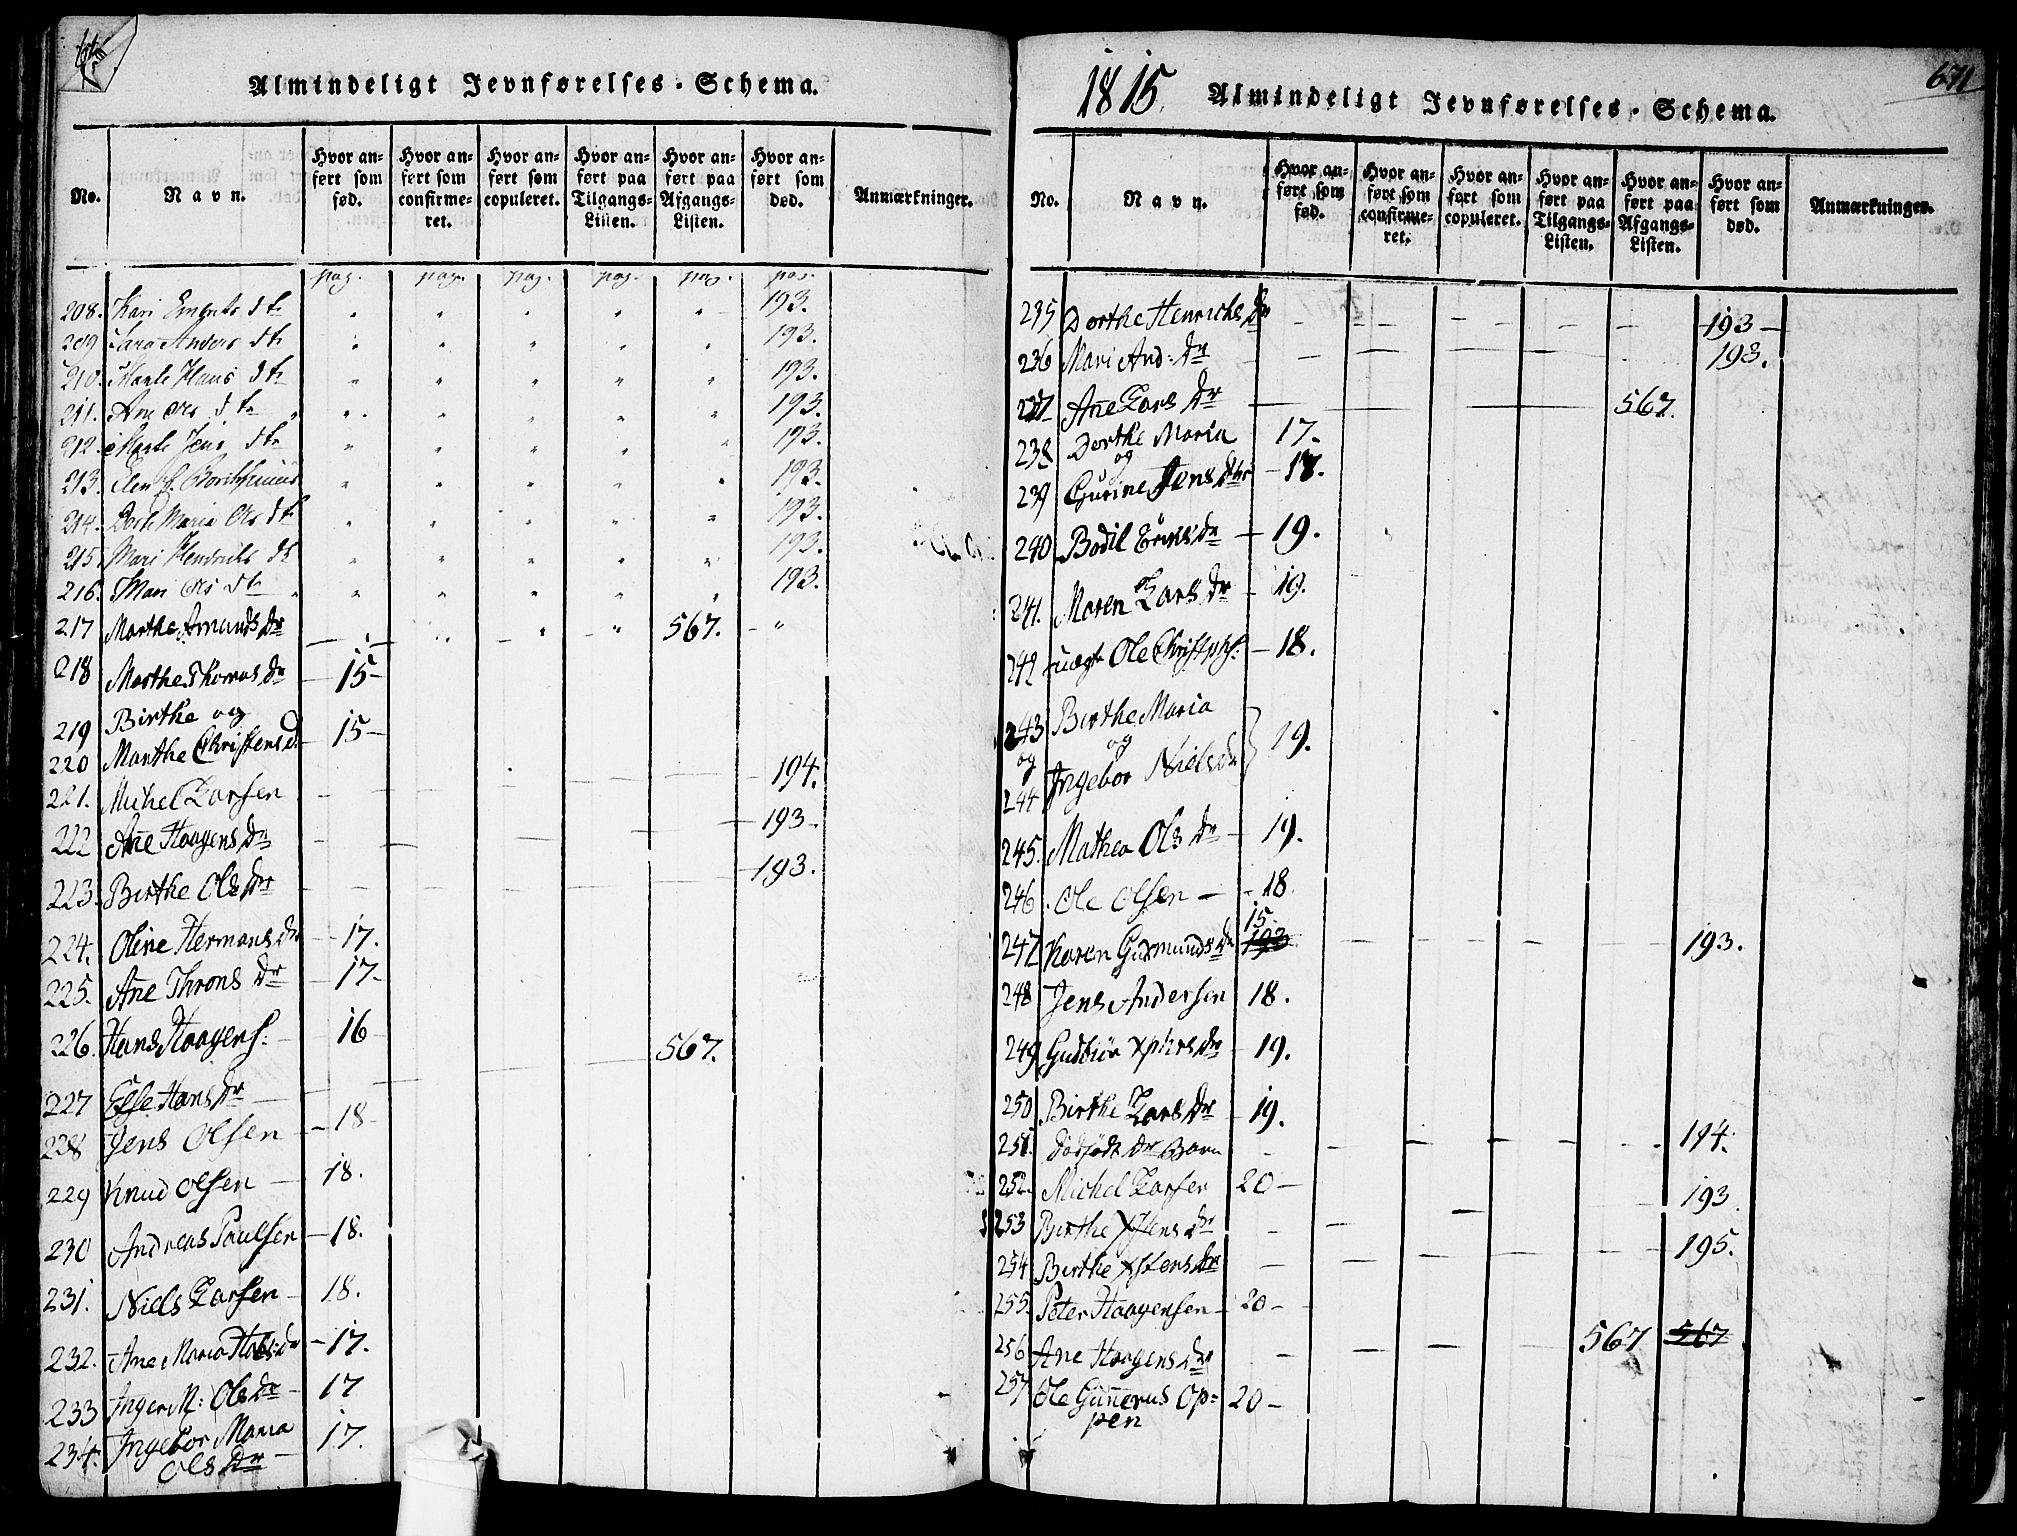 Almindeligt Jevnførelses-Schema.
No. Navn. Hvor anført som fød. Hvor anført som confirmeret. Hvor anført som copuleret. Hvor anført paa Tilgangs-Listen. Hvor anført paa Afgangs-Listen. Hvor anført som død. Anmærkninger.
pag. pag. pag. pag. pag. pag.
208. Kari d tr 193.
209 Anders dtr 193.
210. Marte Hans dtr 193.
211. Ane Ols dtr 193.
212. Marte Jens dtr 193.
213. Elen 193.
214. Dorte Maria Ols dtr 193.
215. Mari Hendriks dtr 193.
216. Mari Ols dtr 193.
217 Marthe Amunds Dr 567. "
218 Marthe Thomas Dr 15-
219 Birthe og
220 Marthe Christens D. 15-
221. Michel Larsen 194.
222 Añe Haagens Dr 193-
223. Birthe Ols Dr 193.
224. Oline Hermans Dr 17.
225. Añe Throns Dr 17-
226. Hans Haagens: 16
227 Else Hans Dr 567.
228 Jens Olsen 18-
229 Knud Olsen 18.
230 Andreas Paulsen 18.
231. Niels Larsen 18.
232. Ane Maria Dr 17.
233 Inger M: Ols Dr 17
234. Ingebor Maria 17.
Ols Dr
1815. Almindeligt Jevnførelses-Schema. 671
No. Navn. Hvor anført som fød. Hvor anført som confirmeret. Hvor anført som copuleret. Hvor anført paa Tilgangs-Listen. Hvor anført paa Afgangs-Listen. Hvor anført som død. Anmærkninger.
235 Dorthe Henrichs Dr 193-
236 Mari And: Dr 193.
237 Añe Lars Dr 567.
238 Dorthe Maria 17.
og
239 Gurine Jens Dtr 17.
240 Bodil Eriks Dr 19.
241. Maren Lars Dr 19.
242 Ole Christphs: 18.
243 Birthe Maria
og og 19.
244 Ingebor Niels Dr
245. Mathea Ols Dr 19.
246. Ole Olsen 18.
15-
247 Karen Gudmunds Dr 193 193.
248 Jens Andersen 18.
249 Gudbiør Xphers Dr 19.
250 Birthe Lars Dr 19.
251. dødfødt Dr Barn 194.
252. Michel Larsen 20-
253 Birthe Dr 193
254 Birthe Xstens Dr 195.
255. Peter Haagensen 20-
256 Ane Haagens Dr 567 567
257 Ole Guñerus Op- 20-
pen